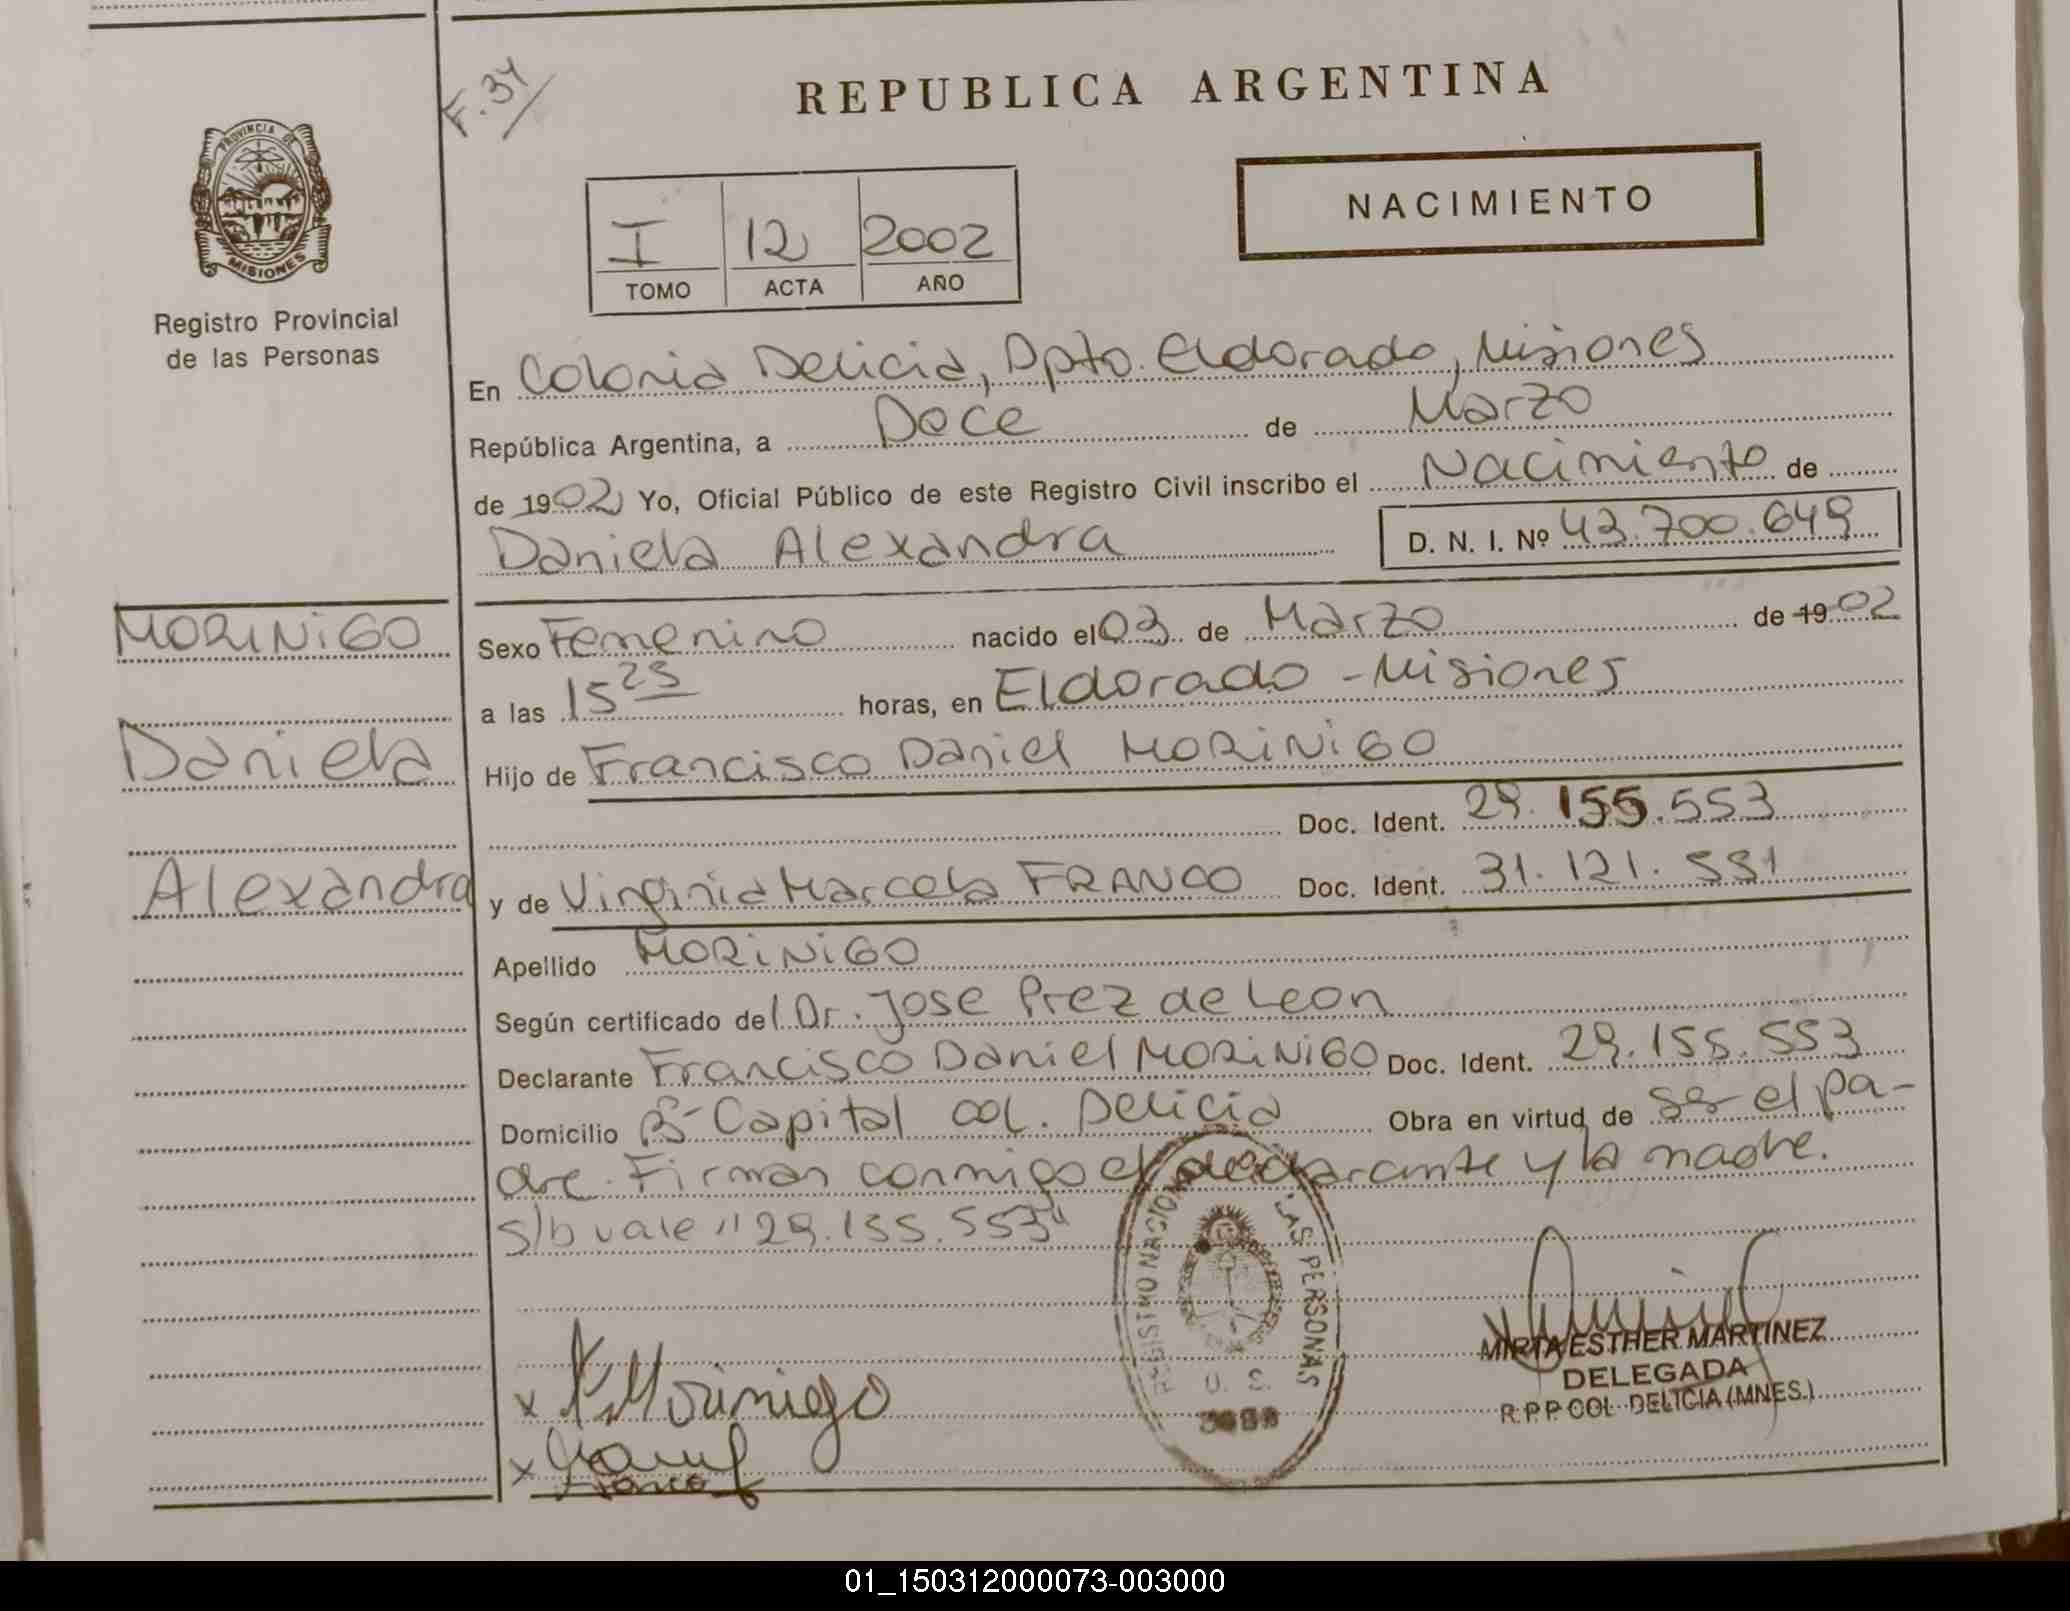 F.34
REPUBLICA ARGENTINA
NACIMIENTO
PROVINCIA DE
MISIONES
Registro Provincial
de las Personas
I 12 2002
TOMO ACTA AÑO
En Colonia Delicia, Dpto. Eldorado, Misiones
República Argentina, a Doce de Marzo
de 1902 Yo, Oficial Público de este Registro Civil inscribo el Nacimiento de
Daniela Alexandra D. N. I. Nº 43.700.649
MORINIGO
Daniela
Alexandra
Sexo Femenino nacido el 03 de Marzo de 1902
a las 15 25 horas, en Eldorado - Misiones
Hijo de Francisco Daniel MORINIGO
Doc. Ident. 29.155.553
y de Virginia Marcela FRANCO Doc. Ident. 31.121.551
Apellido MORINIGO
Según certificado del Dr. Jose Prez de Leon
Declarante Francisco Daniel MORINIGO Doc. Ident. 29.155.553
Domicilio Bº Capital Col. Delicia Obra en virtud de ser el pa-
dre. Firman conmigo el declarante y la madre.
s/b vale "29.155.553"
LAS PERSONAS
U. S.
x Morinigo
x
MIRTA ESTHER MARTINEZ
DELEGADA
R.P.P. COL. DELICIA (MNES.)
01_150312000073-003000